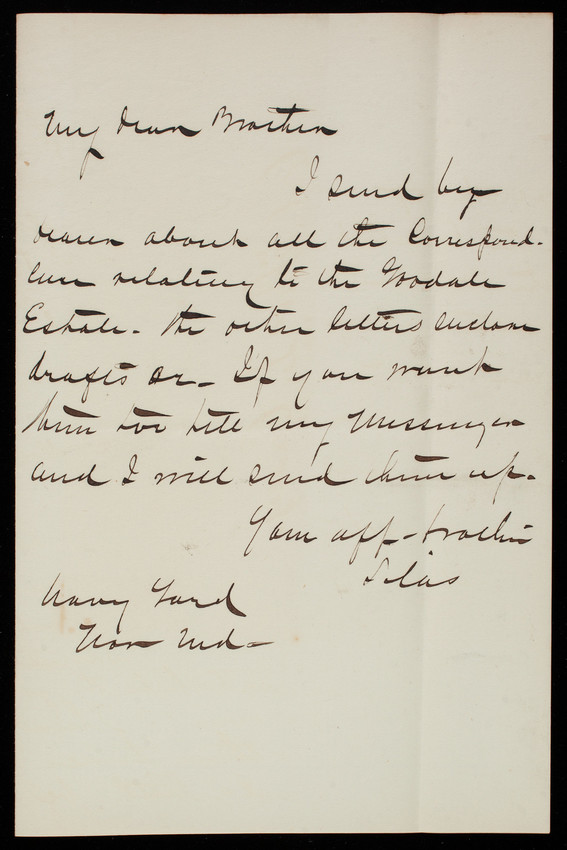 My dear Brother
I send by
bearer about all the Correspond-
ence relating to the Goodale
Estate. The other letters enclose
drafts or. If you want
them too tell my Messenger
and I will send them up.
Your aff- brother
Silas
Navy Yard
Nov 2nd-